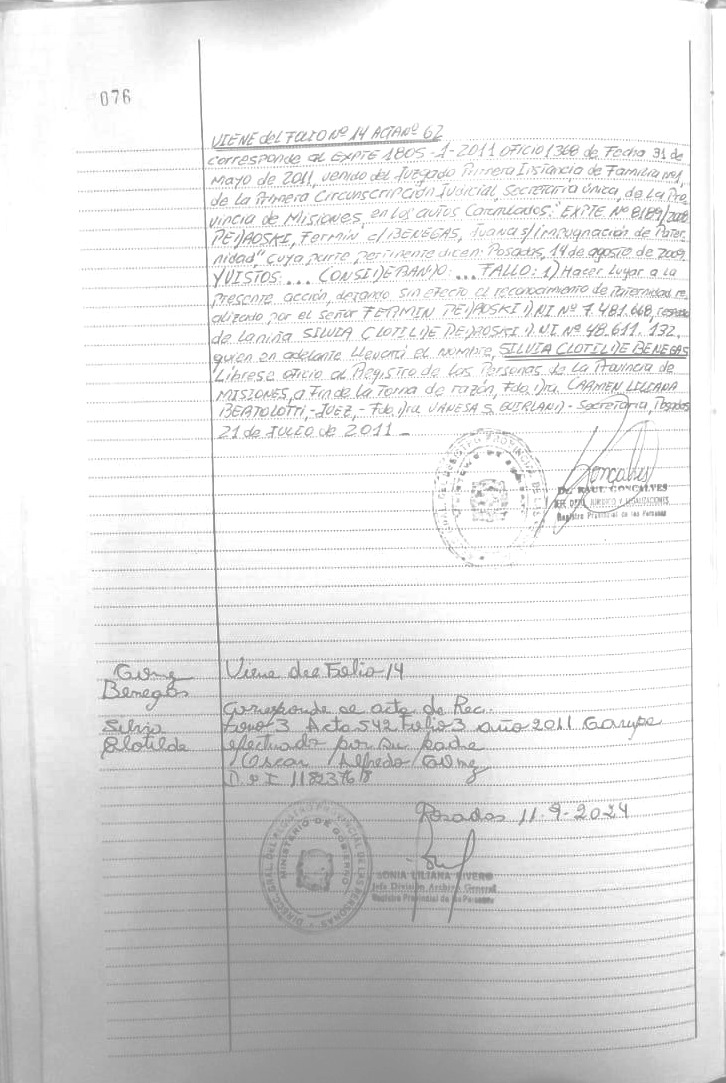 076
VIENE del FOLIO Nº 14 ACTA Nº 62
corresponde al EXPTE 1805-1-2011 OFICIO 1368 de Fecha 31 de
Mayo de 2011, venido del Juzgado Primera Instancia de Familia Nº1,
de la Primera Circunscripción Judicial, Secretaria única, de La Pro-
vincia de Misiones, en los autos Caratulados: "EXPTE Nº 8189/2008
Fermín c/ BENEGAS, Juana s/ impugnación de Pater-
nidad" cuya parte pertinente dicen: Posadas, 14 de agosto de 2009,
Y VISTOS:... CONSIDERANDO:... FALLO: 1) Hacer Lugar a la
presente acción, dejando sin efecto el reconocimiento de Paternidad re-
alizado por el señor FERMIN D.NI Nº 7.481.668, respecto
de La niña SILVIA CLOTILDE D.NI Nº 48.611.132,
quien en adelante llevará el nombre, SILVIA CLOTILDE BENEGAS
Líbrese oficio al Registro de Las Personas de La Provincia de
MISIONES, a Fin de La Toma de razón, Fdo. Dra. CARMEN LILIANA
BERTOLOTTI,-JUEZ,- Fdo. Dra VANESA S. - Secretaria, Posadas
21 de JULIO de 2011 -
Dr. RAUL GONCALVES
JEFE DPTO. JURIDICO Y LEGALIZACIONES
Registro Provincial de las Personas
Viene del Folio 14
Benegas
Silvia
Clotilde
Corresponde al acta de Rec.
Tomo 3 Acta 542 Folio 3 año 2011 Garupa
efectuado por su padre
Oscar Alfredo
D.N.I 11823768
Posadas 11-9-2024
DIRECC. GRAL. DEL REGISTRO PROVINCIAL DE LAS PERSONAS
MINISTERIO DE GOBIERNO
SONIA LILIANA RIVERO
Jefa División Archivo General
Registro Provincial de las Personas